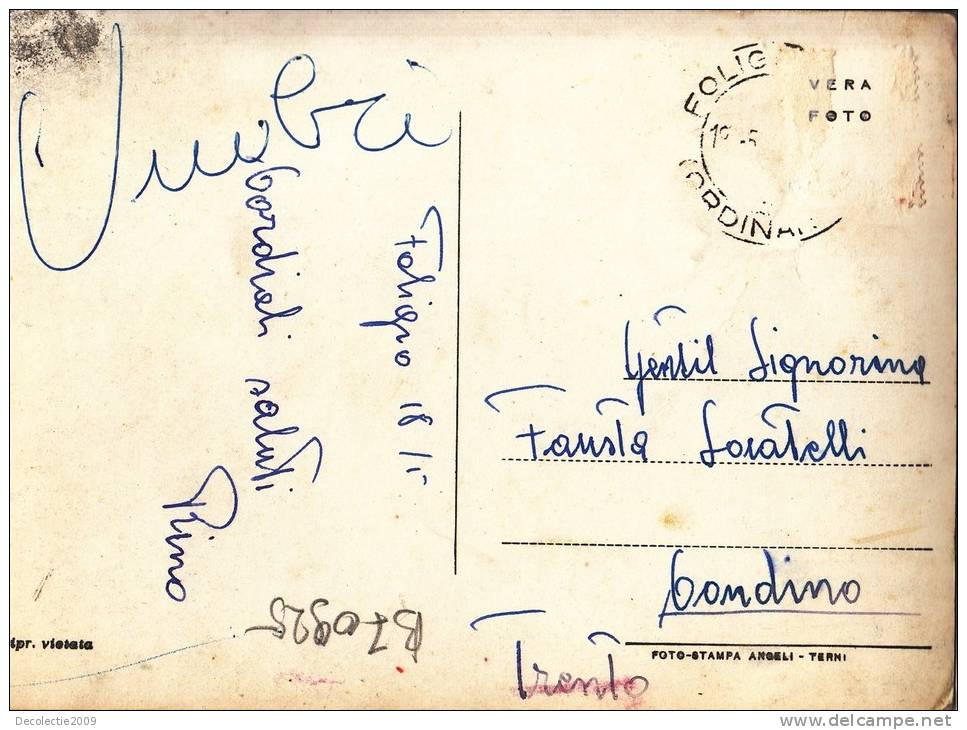 Foligno 18/5
Cordiali saluti
Rino
FOLIG
ORDINA
VERA
FOTO
Gentil Signorina
Fausta Locatelli
Condino
Trento
B70925
ipr. vietata
FOTO-STAMPA ANGELI - TERNI
Decolectie2009
delcampe.net